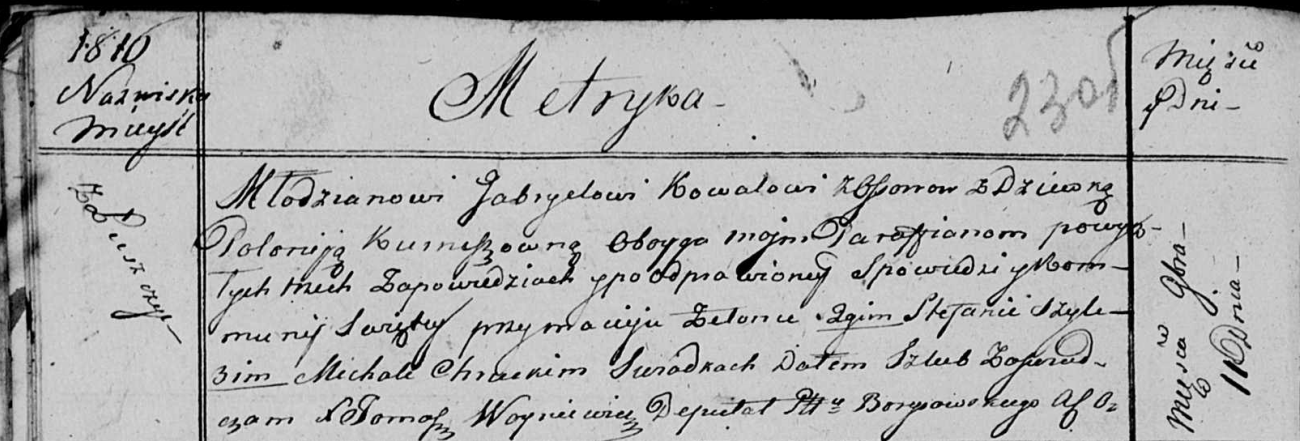 1810
Nazwiska
Mieyść
Metryka
230
Miesić
y Dni
Młodzianowi Gabryelowi Kowalowi z Dziewką
Poloniją Oboyga moim Parafianom powyż-
tych trzech Zapowiedziach y po odprawioney Spowiedzi y Kom-
munij Swiętey przy macieju Zelonce 2gim Stefanie Szyle-
3im Michale Chrackim Swiadkach Dałem Szlub Zaswiad-
czam X Tomasz Woyniewicz Deputat Pttu Borysowskiego
Miesća
16 Dnia